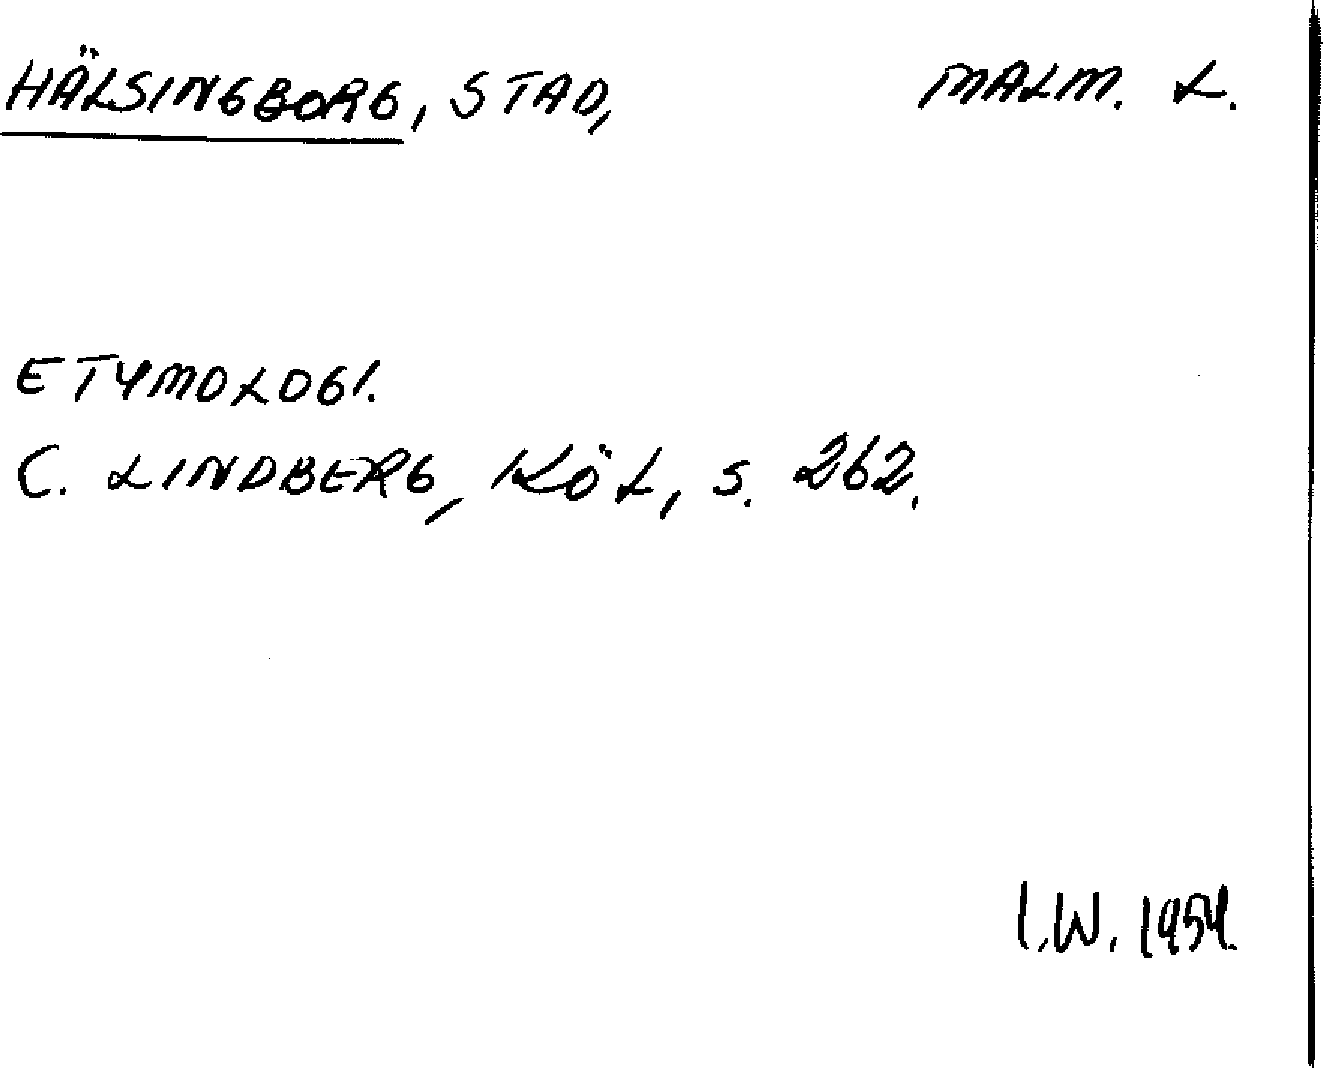 HÄLSINGBORG, STAD, MALM. L.
ETYMOLOGI.
C. LINDBERG, KÖL, S. 262.
I.W. 1954.